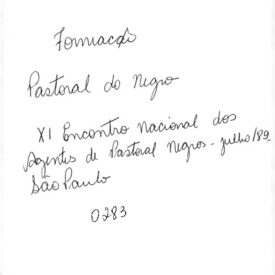 Formação
Pastoral do Negro
XI Encontro Nacional dos
Agentes de Pastoral Negros - julho/89
São Paulo
0283